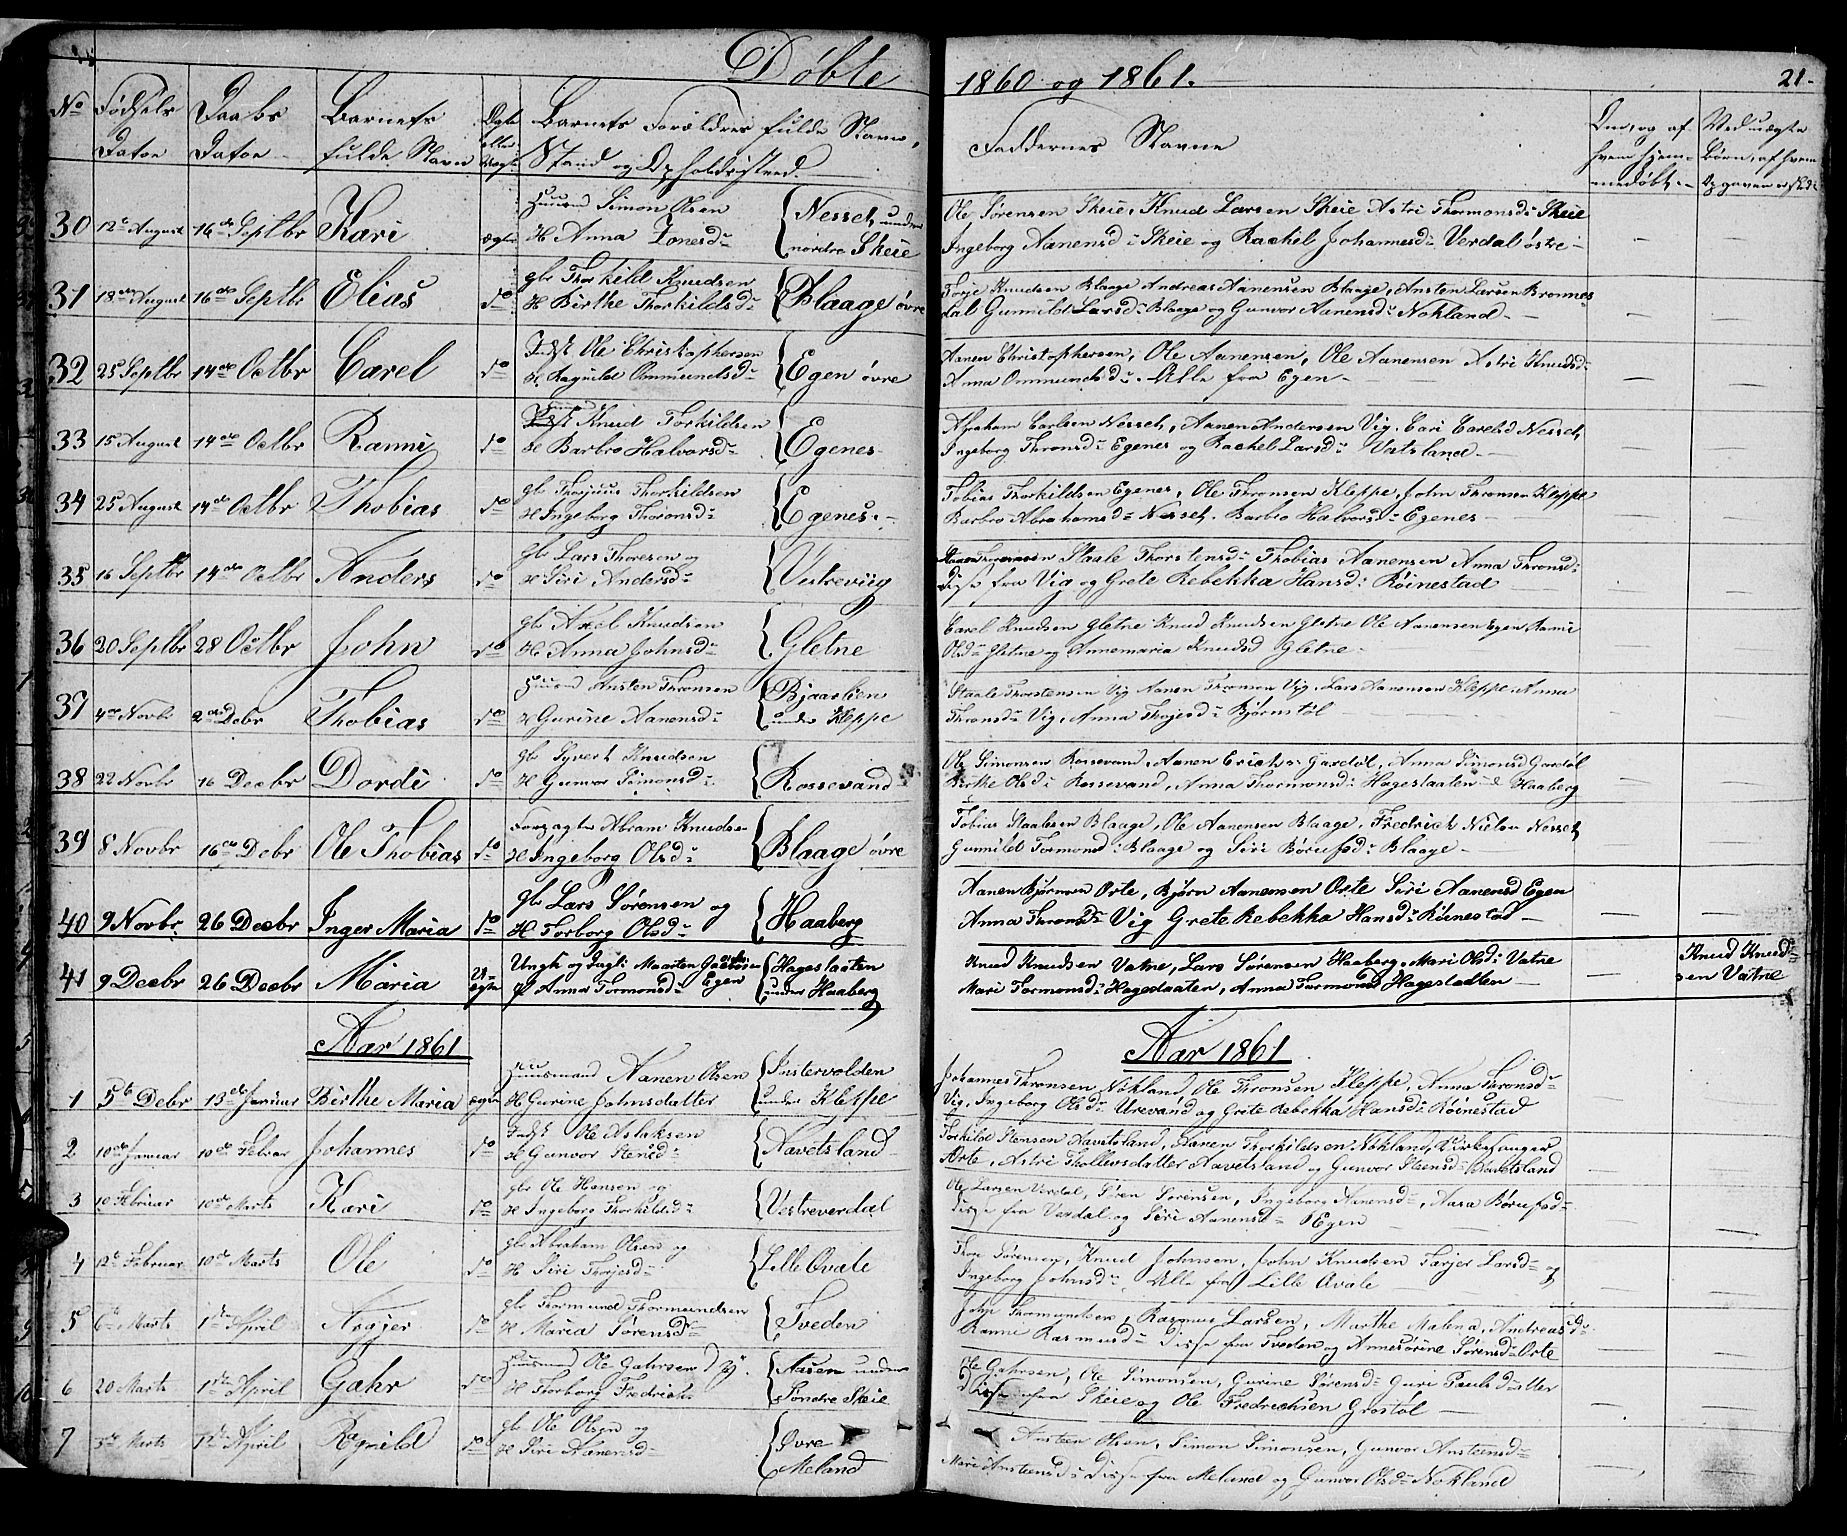 Døbte
1860 og 1861.
21.
No Fødsels Datoe Daabs Datoe Barnets fulde Navn Ægte eller Uægte Barnets Forældres fulde Navn, Stand og Opholdssted.
Faddernes Navne
Om, og af hvem hjemmedøbt.
Ved uægte Børn, af hvem
30 12te August 16de Septbr Kari ægte Huusmd Simon Olsen
H Anna Tonesd: { Nesset under nordre Skeie
Ole Sørensen Skeie, Knud Larsen Skeie Astri Thormonsd: Skeie
Ingeborg Aanensd: Skeie og Rachel Johannesd: Verdal østre —
31 18de August 16de Septbr Elias do gbr Thorkild Knudsen
H Birthe Thorkildsd: { Blaage øvre
Torje Knudsen Blaage Andreas Aanensen Blaage, Ansten Larsen Bronnes-
dal Gunuild Larsd: Blaage og Gunvor Aanensd: Nokland —
32 25 Septbr 14de Octbr Carel do Indst Ole Christophersen
H. Raguild Ommundsd: { Egen øvre
Aanen Christophersen, Ole Aanensen, Ole Aanensen Astri Knudsd:
Anna Ommundsd: Alle fra Egen —
33 15 August 14de Octbr Ranni do Knud Torkildsen
H Barbro Halvorsd: { Egenes
Abraham Carlsen Nesset, Aanen Andersen Vig. Cari Carelsd Nesset,
Ingeborg Thronsd: Egenes og Rachel Larsd: Vatsland —
34 25 August 14de Octbr Thobias do gbr Thorjuus Thorkildsen
H Ingeborg Thoronsd: { Egenes
Tobias Thorkildsen Egenes, Ole Thronsen Kleppe, John Thronsen Kleppe
Barbro Abrahamsd: Nesset. Barbro Halvorsd: Egenes —
35 16 Septbr 14de Octbr Anders do gbr Lars Thoresen og
H Siri Andersd: { Vestrevig
Staale Thorstensd: Thobias Aanensen Anna Thronsd:
Disse fra Vig og Grete Rebekka Hansd: Röinestad
36 20 Septbr 28 Octbr John do gbr Axel Knudsen
H Anna Johnsd: { Gletne
Carel Knudsen Gletne Knud Knudsen Gletne Ole Aanensen Egen Ranni
Olsd: Gletne og Annemaria Knudsd Gletne —
37 4de Novbr 2den Debr Thobias do Huusmd Ansten Thronsen
H Gurine Aanensd: { Bjaaslien under Kleppe
Staale Thorstensen Vig Aanen Thronsen Vig, Lars Hanensen Kleppe, Anna
Thronsd: Vig, Anna Thorjesd: Bjørnstøl
38 22 Novbr 16 Decbr Dordi do gbr Syvert Knudsen
H Gunvor Simonsd: { Rossevand
Ole Simonsen Rossevand, Aanen Erichs: Gardøl, Anna Simonsd Gardøl
Birthe Olsd: Rossevand, Anna Thormonsd: Hagestaaten Haaberg
39 8 Novbr 16de Debr Ole Thobias do Forpagter Abram Knudsen
H Ingeborg Olsd: { Blaage øvre
Tobias Staalesen Blaage, Ole Aanensen Blaage, Fredrich Nielsen Nesset,
Gunuild Tormond: Blaage og Siri Börufsd: Blaage —
40 9 Novbr 26 Decbr Inger Maria do gbr Lars Sørensen og
H Torborg Olsd: { Haaberg
Aanen Bjørnsen Orte, Bjørn Aanensen Orte Siri Aanensd Egen
Anna Thronsd: Vig Grete Rebekka Hansd: Röinestad —
41 9 Decbr 26 Decbr Maria Uægte Ungk og Indst: Maarten Egen
P Anna Tormonsd: { Hagestaaten under Haaberg
Knud Knudsen Vatne, Lars Sørensen Haaberg, Mari Olsd: Vatne
Mari Tormonsd: Hagestaaten, Anna Tormonsd Hagestadten —
Knud Knudsen Vatne
Aar 1861
Aar 1861
1 5te Debr 13de Januar Birthe Maria ægte Huusmand Aanen Olsen
H Gurine Johnsdatter { Instevolden under Kleppe
Johannes Thronsen Nokland, Ole Thronsen Kleppe, Anna Thronsd:
Vig, Ingeborg Olsd: Urevand og Grete Rebekka Hansd: Röinestad
2 10de Januar 10de Febuar Johannes do Indst Ole Aslaksen
H Gunvor Stensd: { Aavetsland
Torkild Stensen Aavetsland, Aanen Thorkildsen Nokland, Kirkesanger
Orte, Astri Thollevsdatter Aavetsland og Gunvor Steensd: Aavetsland
3 10 Februar 10de Marts Kari do gbr Ole Hansen og
H Ingeborg Thorkildsd: { Vestreverdal
Ole Larsen Verdal, Sören Sørensen, Ingeborg Aanensd:, Aasa Börufsd:
Disse fra Verdal og Siri Aanensd: Egen —
4 12te Februar 10de Marts Ole do gbr Abraham Olsen og
H Siri Thorjesd: { Lille Øvale
Thore Sørensen, Knud Johnsen, John Knudsen Tarjer Larsd: og
Ingeborg Johnsd: Alle fra Lille Øvale
5 6te Marts 1ste April Asgjer do gbr Thormund Thormundsen
H Maria Sørensd: { Tveden
John Thormundsen, Rasmus Larsen, Marthe Malena, Andreasd:
Ranni Rasmusd: Disse fra Tveden og Annesørine Sørensd: Orte
6 20 Marts 1ste April Gahr do Huusmd Ole Gahrsen
H Thorborg Fredrichs { Aasen under Söndre Skeie
Ole Gahrsen, Ole Simonsen, Gurine Sørensd: Guri Paulsdatter
Disse fra Skeie og Ole Fredrichsen Grostøl —
7 Marts 1ste April Ragnild do gbr Ole Olsen og
H Siri Aanensd: { Øvre Meland
Ansteen Olsen, Simon Simonsen, Gunvor Ansteensd:
Mari Ansteensd: Disse fra Meland og Gunvor Olsd: Nokland